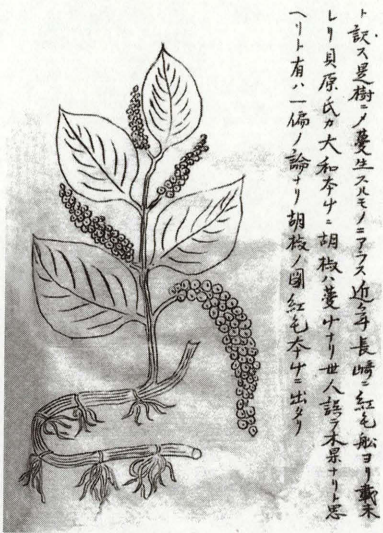 ト訳ス是樹ニノ蔓生スルモノニアラス近年長崎ニ紅毛舶ヨリ載来
レリ貝原氏カ大和本艸ニ胡椒ハ蔓艸ナリ世人誤テ木果ナリト思
ヘリト有ハ一偏ノ論ナリ胡椒ノ図紅毛本艸ニ出タリ